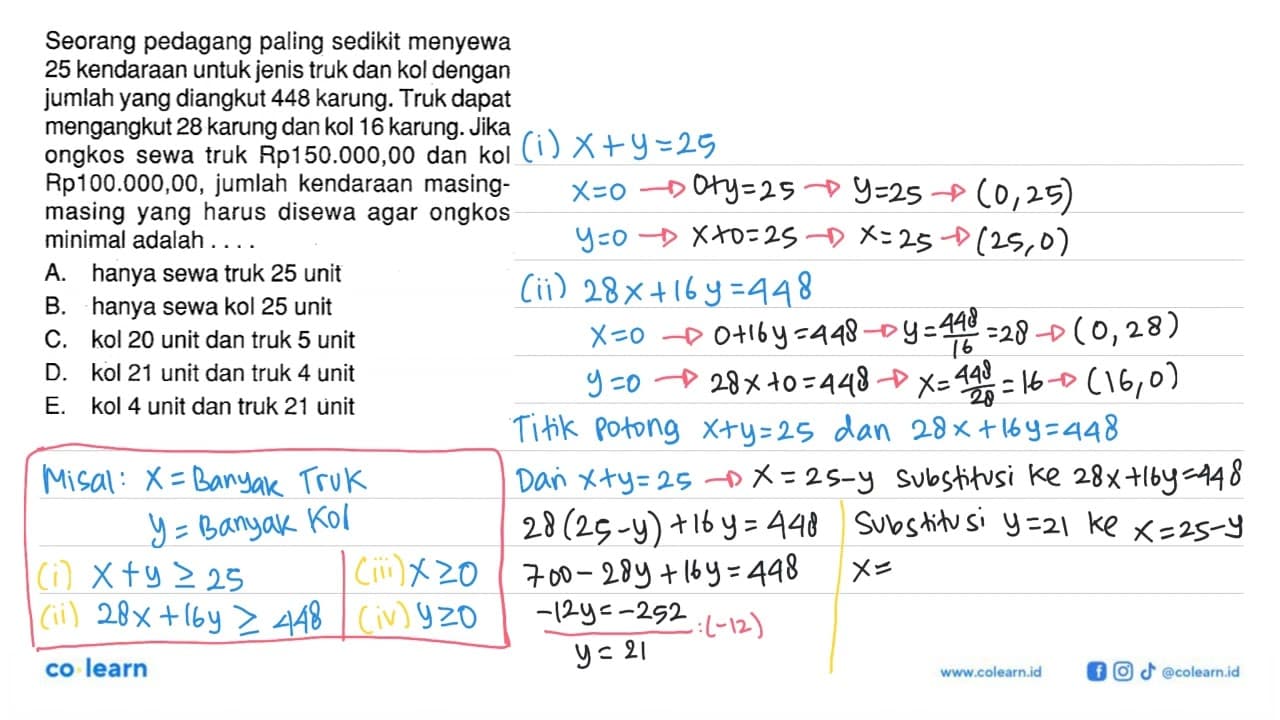 Seorang pedagang paling sedikit menyewa
25 kendaraan untuk jenis truk dan kol dengan
jumlah yang diangkut 448 karung. Truk dapat
mengangkut 28 karung dan kol 16 karung. Jika
ongkos sewa truk Rp150.000,00 dan kol
Rp100.000,00, jumlah kendaraan masing-
masing yang harus disewa agar ongkos
minimal adalah . . . .
A. hanya sewa truk 25 unit
B. hanya sewa kol 25 unit
C. kol 20 unit dan truk 5 unit
D. kol 21 unit dan truk 4 unit
E. kol 4 unit dan truk 21 unit
Misal: x = Banyak Truk
y = Banyak Kol
(i) x + y ≥ 25
(ii) 28x + 16y ≥ 448
(iii) x ≥ 0
(iv) y ≥ 0
(i) x + y = 25
x=0 → 0+y=25 → y=25 → (0,25)
y=0 → x+0=25 → x=25 → (25,0)
(ii) 28x + 16y = 448
x=0 → 0+16y=448 → y=448/16=28 → (0,28)
y=0 → 28x+0=448 → x=448/28=16 → (16,0)
Titik potong x+y=25 dan 28x+16y=448
Dari x+y=25 → x=25-y substitusi ke 28x+16y=448
28(25-y)+16y=448
700-28y+16y=448
-12y=-252 :(-12)
y=21
Substitusi y=21 ke x=25-y
x=
co learn
www.colearn.id
@colearn.id